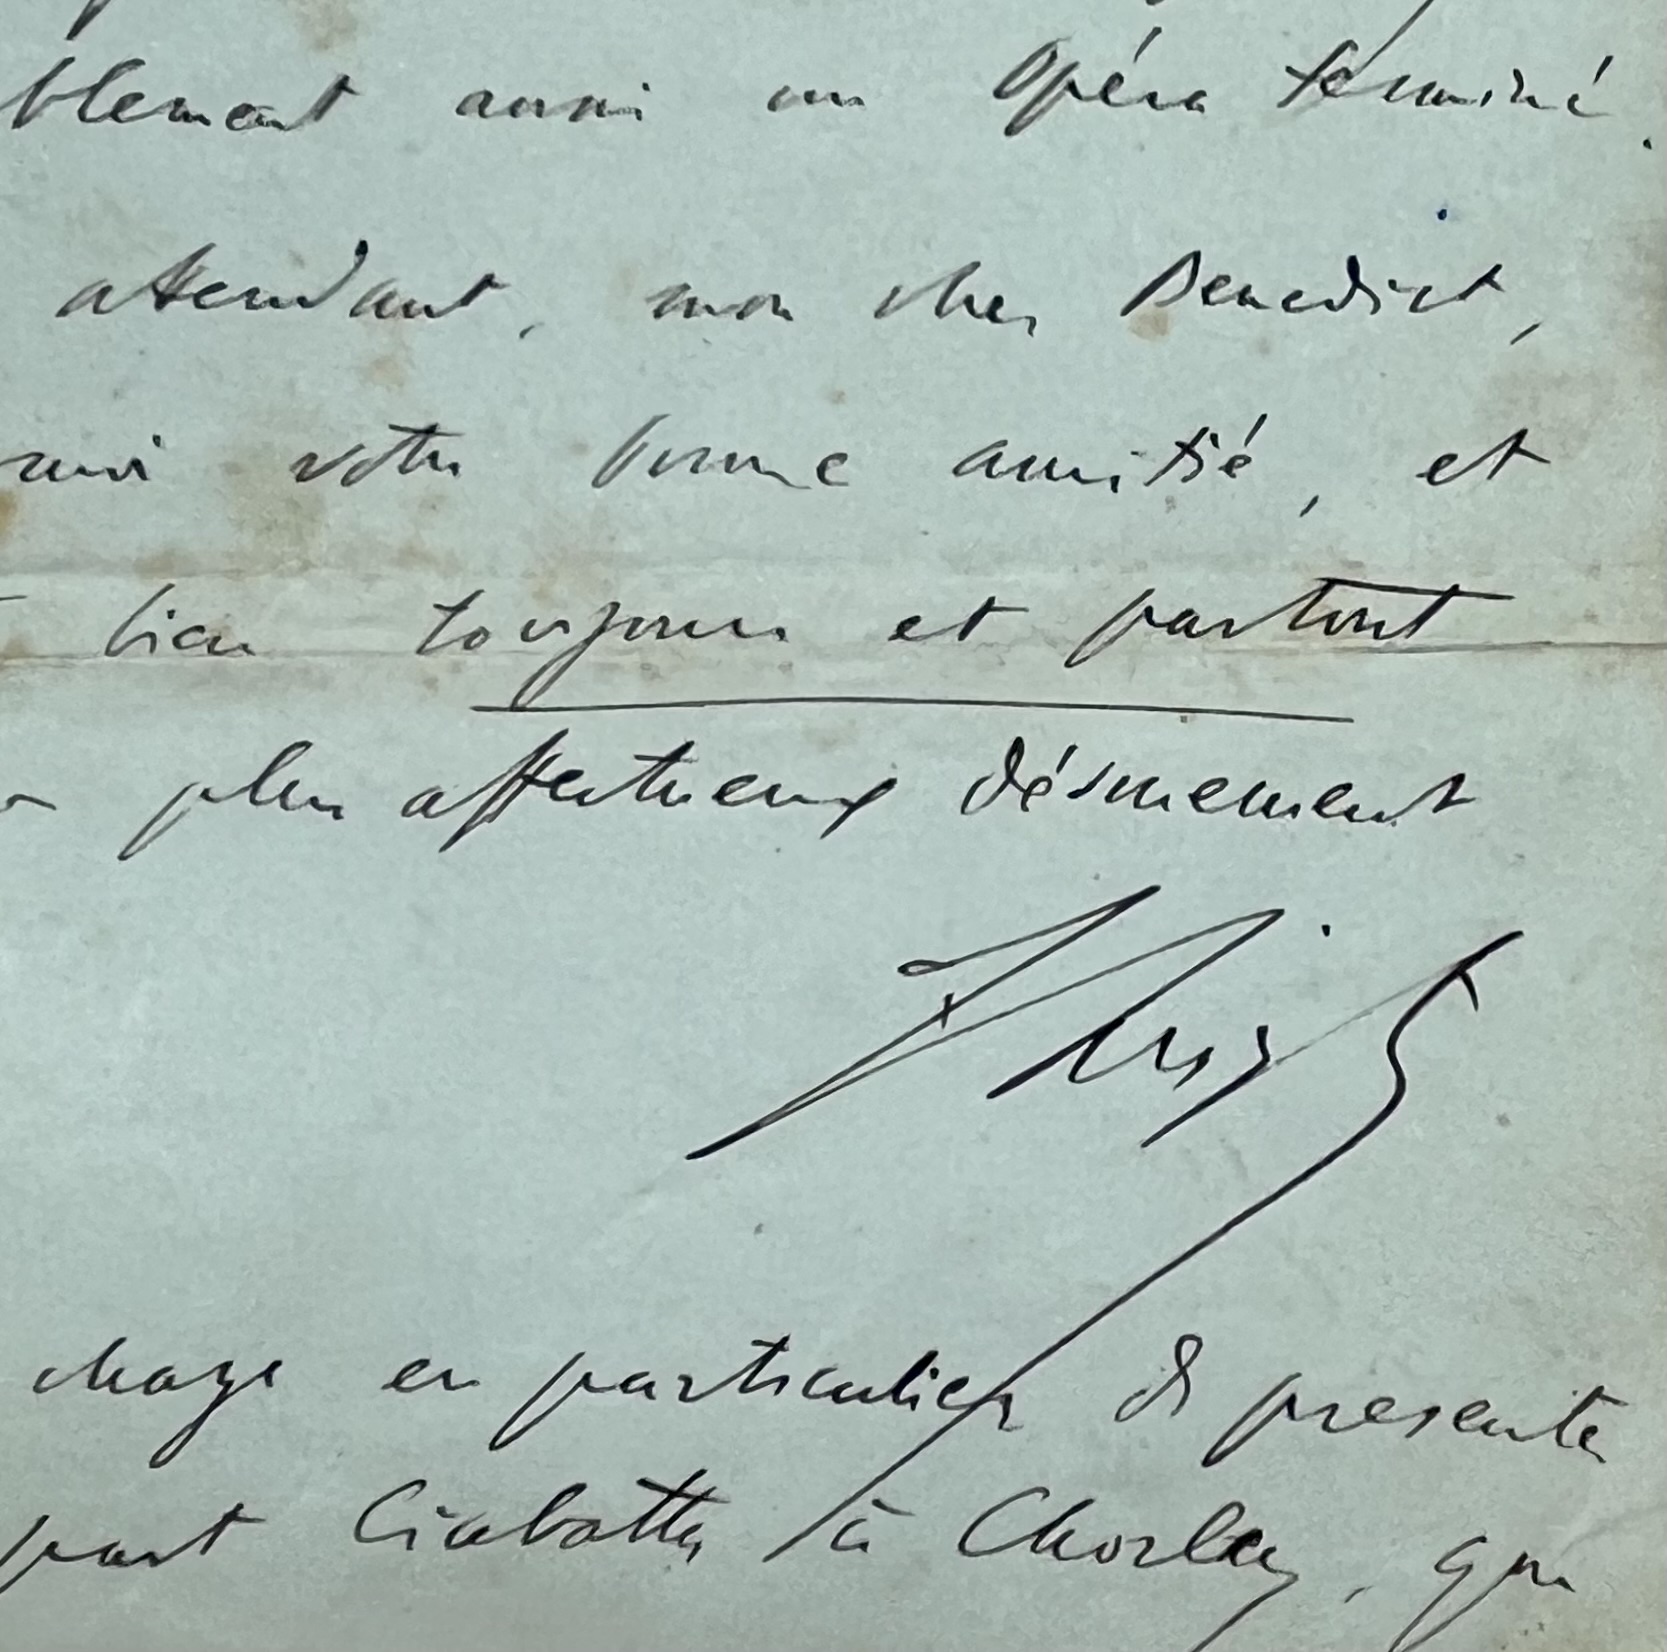 blement aussi un Opéra terminé.
attendant, mon cher Benedict,
moi votre bonne amitié, et
bien toujours et partout
plus affectueux dévouement
F Liszt
charge en particulier de presenter
part Ciabatta à Chorley, que